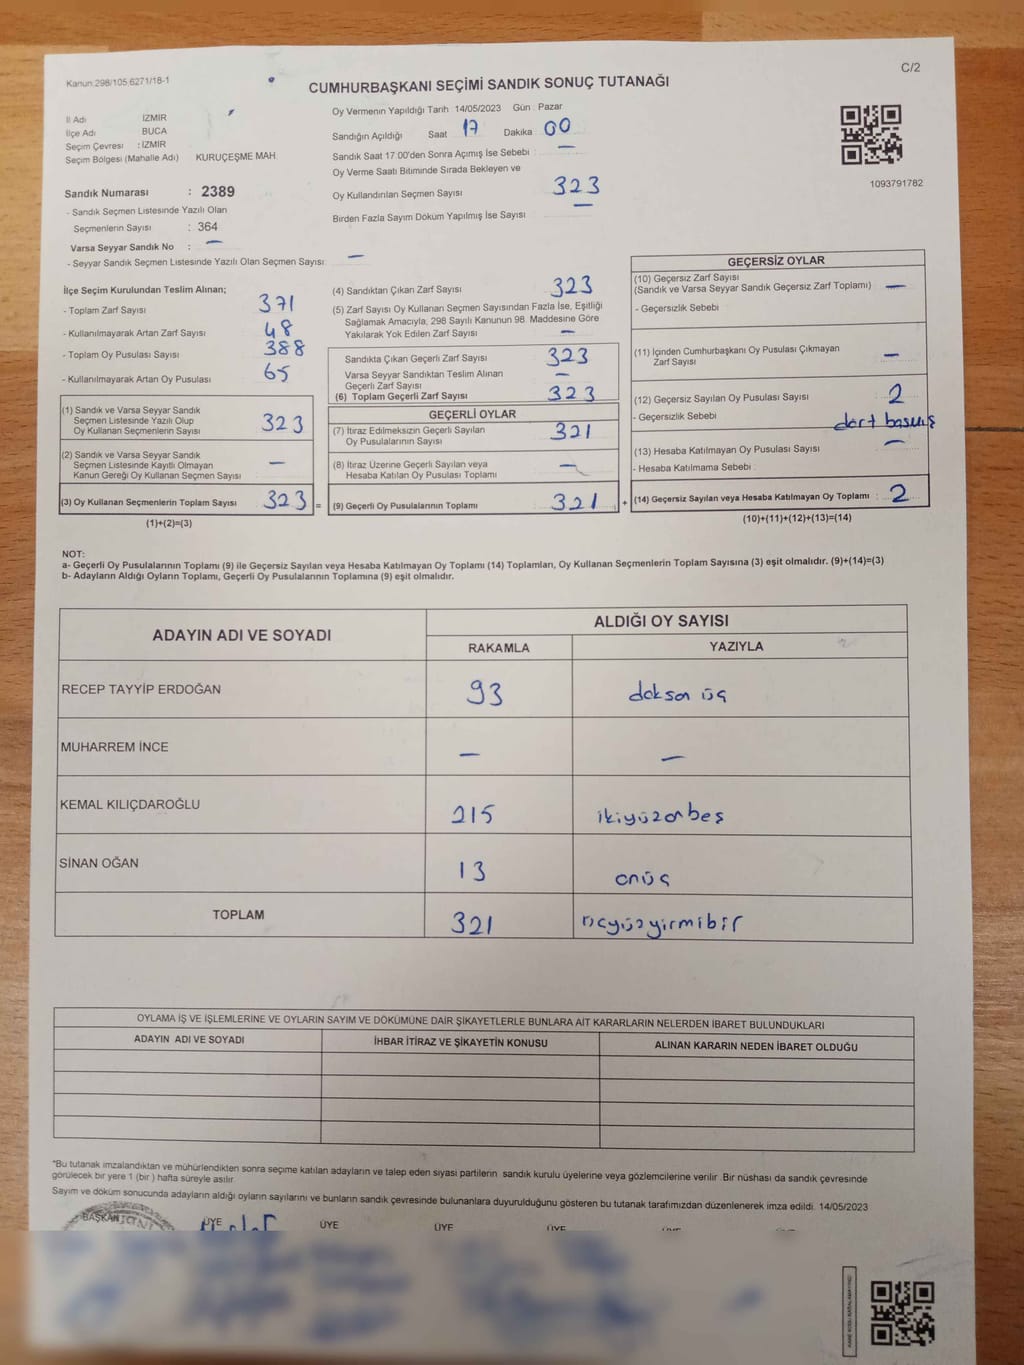 Kanun 298/105,6271/18-1
C/2
CUMHURBAŞKANI SEÇİMİ SANDIK SONUÇ TUTANAĞI
İl Adı İZMİR
İlçe Adı BUCA
Seçim Çevresi : İZMİR
Seçim Bölgesi (Mahalle Adı) KURUÇEŞME MAH
Sandık Numarası : 2389
- Sandık Seçmen Listesinde Yazılı Olan
Seçmenlerin Sayısı : 364
Varsa Seyyar Sandık No : —
- Seyyar Sandık Seçmen Listesinde Yazılı Olan Seçmen Sayısı —
Oy Vermenin Yapıldığı Tarih 14/05/2023 Gün : Pazar
Sandığın Açıldığı Saat 17 Dakika 00
Sandık Saat 17:00'den Sonra Açımış İse Sebebi : —
Oy Verme Saati Bitiminde Sırada Bekleyen ve
Oy Kullandırılan Seçmen Sayısı 323
Birden Fazla Sayım Döküm Yapılmış İse Sayısı —
1093791782
İlçe Seçim Kurulundan Teslim Alınan;
- Toplam Zarf Sayısı 371
- Kullanılmayarak Artan Zarf Sayısı 48
- Toplam Oy Pusulası Sayısı 388
- Kullanılmayarak Artan Oy Pusulası 65
(1) Sandık ve Varsa Seyyar Sandık
Seçmen Listesinde Yazılı Olup
Oy Kullanan Seçmenlerin Sayısı 323
(2) Sandık ve Varsa Seyyar Sandık
Seçmen Listesinde Kayıtlı Olmayan
Kanun Gereği Oy Kullanan Seçmen Sayısı —
(3) Oy Kullanan Seçmenlerin Toplam Sayısı 323 =
(1)+(2)=(3)
(4) Sandıktan Çıkan Zarf Sayısı 323
(5) Zarf Sayısı Oy Kullanan Seçmen Sayısından Fazla İse, Eşitliği
Sağlamak Amacıyla, 298 Sayılı Kanunun 98. Maddesine Göre
Yakılarak Yok Edilen Zarf Sayısı —
Sandıkta Çıkan Geçerli Zarf Sayısı 323
Varsa Seyyar Sandıktan Teslim Alınan
Geçerli Zarf Sayısı —
(6) Toplam Geçerli Zarf Sayısı 323
GEÇERLİ OYLAR
(7) İtiraz Edilmeksizin Geçerli Sayılan
Oy Pusulalarının Sayısı 321
(8) İtiraz Üzerine Geçerli Sayılan veya
Hesaba Katılan Oy Pusulası Toplamı —
(9) Geçerli Oy Pusulalarının Toplamı 321 +
GEÇERSİZ OYLAR
(10) Geçersiz Zarf Sayısı
(Sandık ve Varsa Seyyar Sandık Geçersiz Zarf Toplamı) —
- Geçersizlik Sebebi
(11) İçinden Cumhurbaşkanı Oy Pusulası Çıkmayan
Zarf Sayısı —
(12) Geçersiz Sayılan Oy Pusulası Sayısı 2
- Geçersizlik Sebebi dört basmış
(13) Hesaba Katılmayan Oy Pusulası Sayısı —
- Hesaba Katılmama Sebebi
(14) Geçersiz Sayılan veya Hesaba Katılmayan Oy Toplamı : 2
(10)+(11)+(12)+(13)=(14)
NOT:
a- Geçerli Oy Pusulalarının Toplamı (9) ile Geçersiz Sayılan veya Hesaba Katılmayan Oy Toplamı (14) Toplamları, Oy Kullanan Seçmenlerin Toplam Sayısına (3) eşit olmalıdır. (9)+(14)=(3)
b- Adayların Aldığı Oyların Toplamı, Geçerli Oy Pusulalarının Toplamına (9) eşit olmalıdır.
ADAYIN ADI VE SOYADI ALDIĞI OY SAYISI
RAKAMLA YAZIYLA
RECEP TAYYİP ERDOĞAN 93 doksan üç
MUHARREM İNCE — —
KEMAL KILIÇDAROĞLU 215 ikiyüzonbeş
SİNAN OĞAN 13 onüç
TOPLAM 321 üçyüzyirmibir
OYLAMA İŞ VE İŞLEMLERİNE VE OYLARIN SAYIM VE DÖKÜMÜNE DAİR ŞİKAYETLERLE BUNLARA AİT KARARLARIN NELERDEN İBARET BULUNDUKLARI
ADAYIN ADI VE SOYADI İHBAR İTİRAZ VE ŞİKAYETİN KONUSU ALINAN KARARIN NEDEN İBARET OLDUĞU
*Bu tutanak imzalandıktan ve mühürlendikten sonra seçime katılan adayların ve talep eden siyasi partilerin sandık kurulu üyelerine veya gözlemcilerine verilir. Bir nüshası da sandık çevresinde
görülecek bir yere 1 (bir ) hafta süreyle asılır.
Sayım ve döküm sonucunda adayların aldığı oyların sayılarını ve bunların sandık çevresinde bulunanlara duyurulduğunu gösteren bu tutanak tarafımızdan düzenlenerek imza edildi. 14/05/2023
BAŞKAN ÜYE ÜYE ÜYE ÜYE